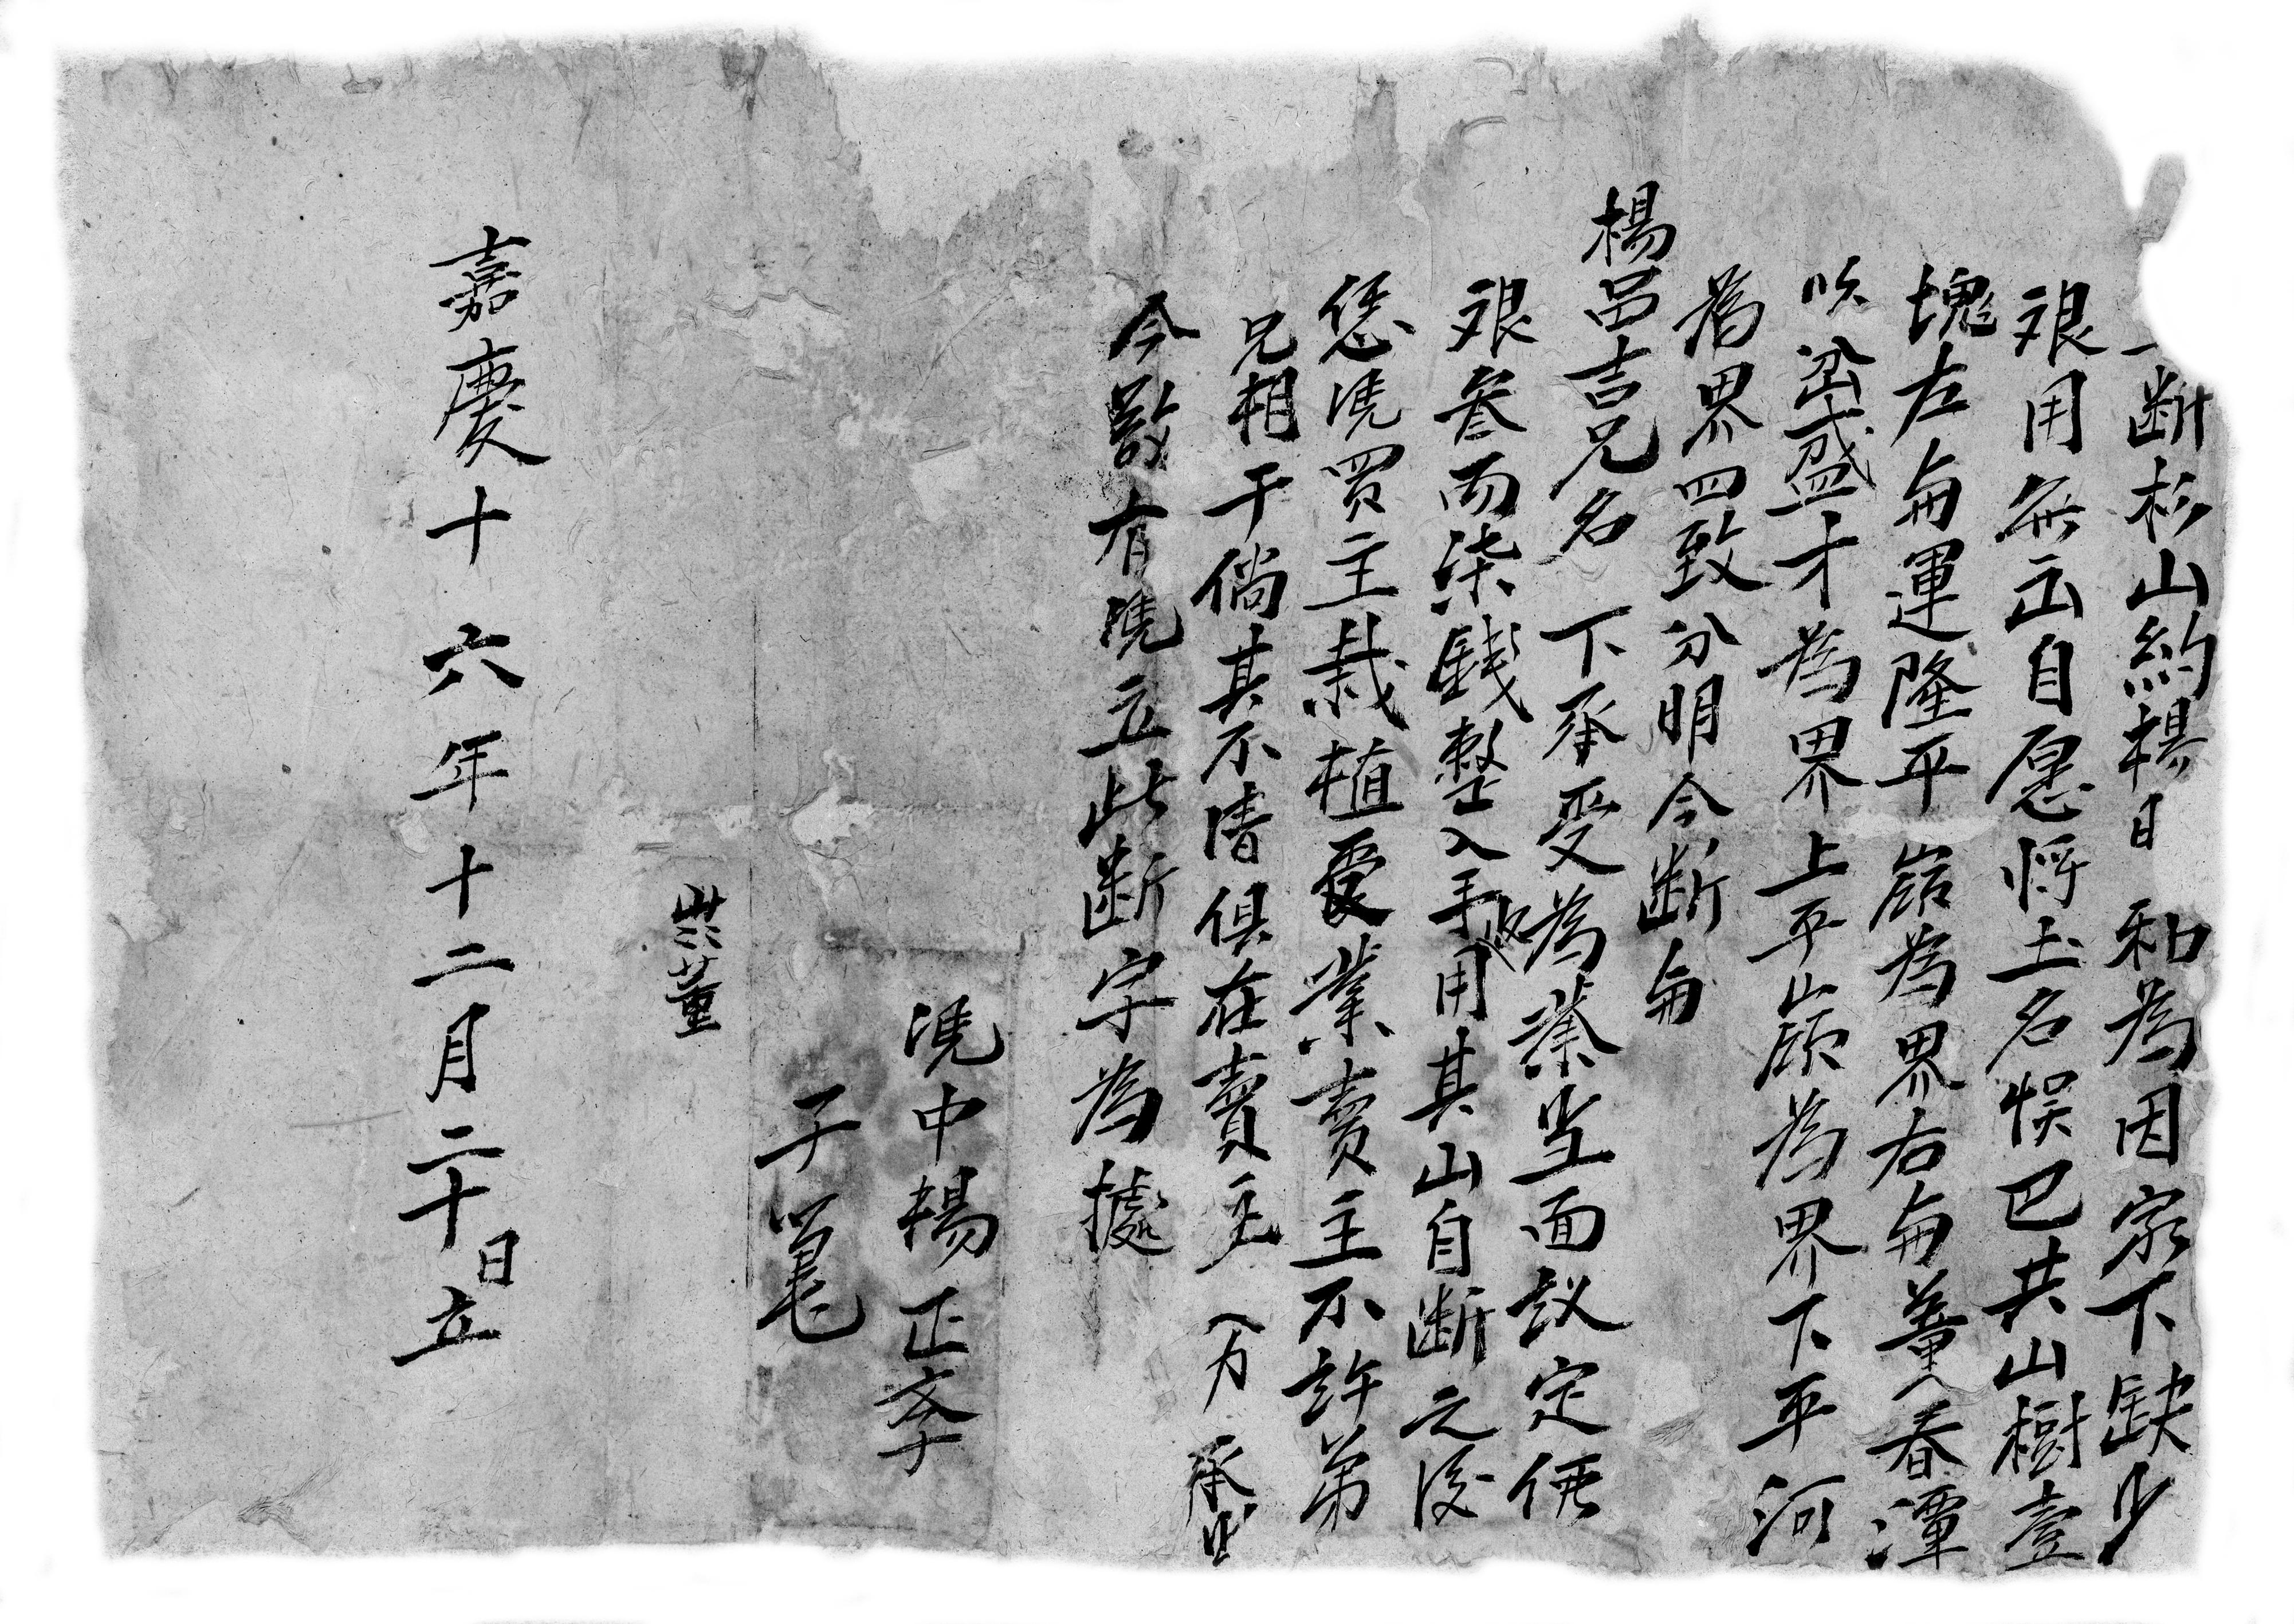 断杉山約楊日和為因家下缺少
艮用無出自愿将土名悮巴共山樹壹
塊左與運隆平嶺為界右與董春潭
盛才為界上平山頂為界下平河
為界四致分明今断與
楊昌吉兄名下承受為業當面议定価
艮叁両柒錢整入手收用其山自断之後
恁憑買主栽植受業賣主不許弟
兄相干倘其不清俱在賣主 力承當
今欲有憑立此断字為據
憑中楊正
子筆
董
嘉慶十六年十二月二十日立